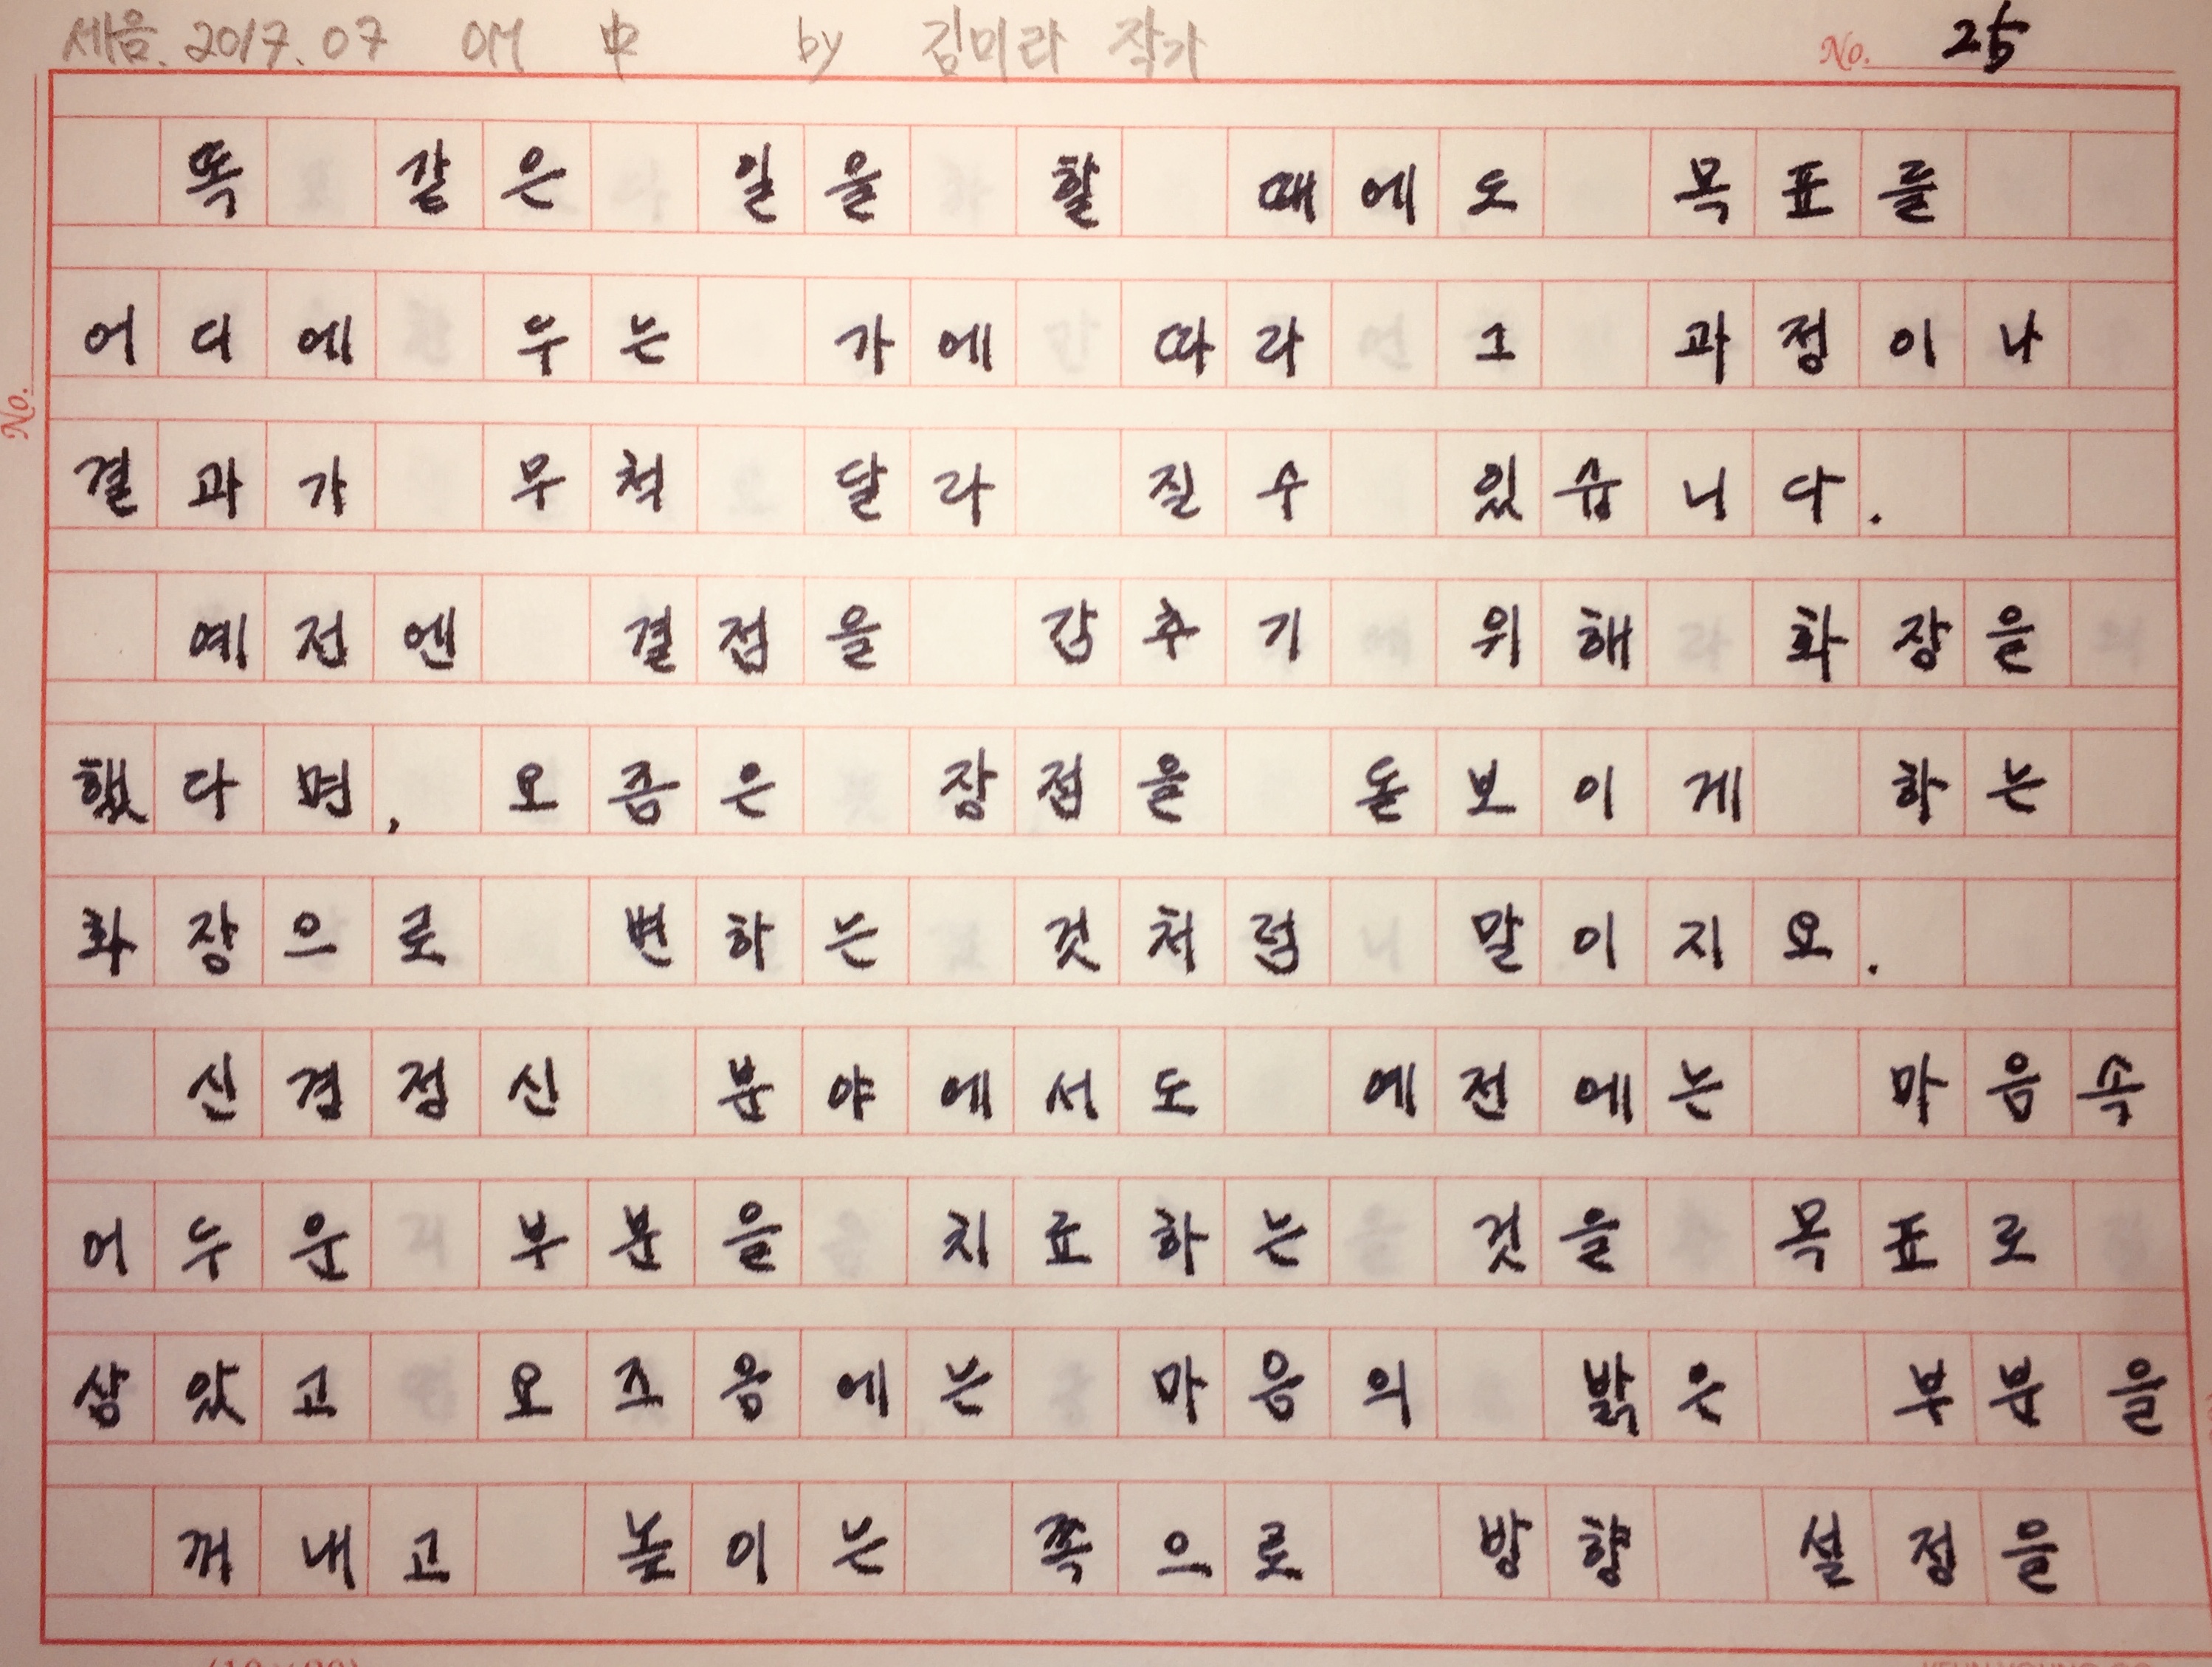 세음. 2017. 07 에 中 by 김미라 작가
No. 25
똑 같은 일을 할 때에도 목표를
어디에 두는 가에 따라 그 과정이나
결과가 무척 달라 질수 있습니다.
예전엔 결점을 감추기 위해 화장을
했다면, 요즘은 장점을 돋보이게 하는
화장으로 변하는 것처럼 말이지요.
신경정신 분야에서도 예전에는 마음속
어두운 부분을 치료하는 것을 목표로
삼았고 요즈음에는 마음의 밝은 부분을
꺼내고 높이는 쪽으로 방향 설정을
No.